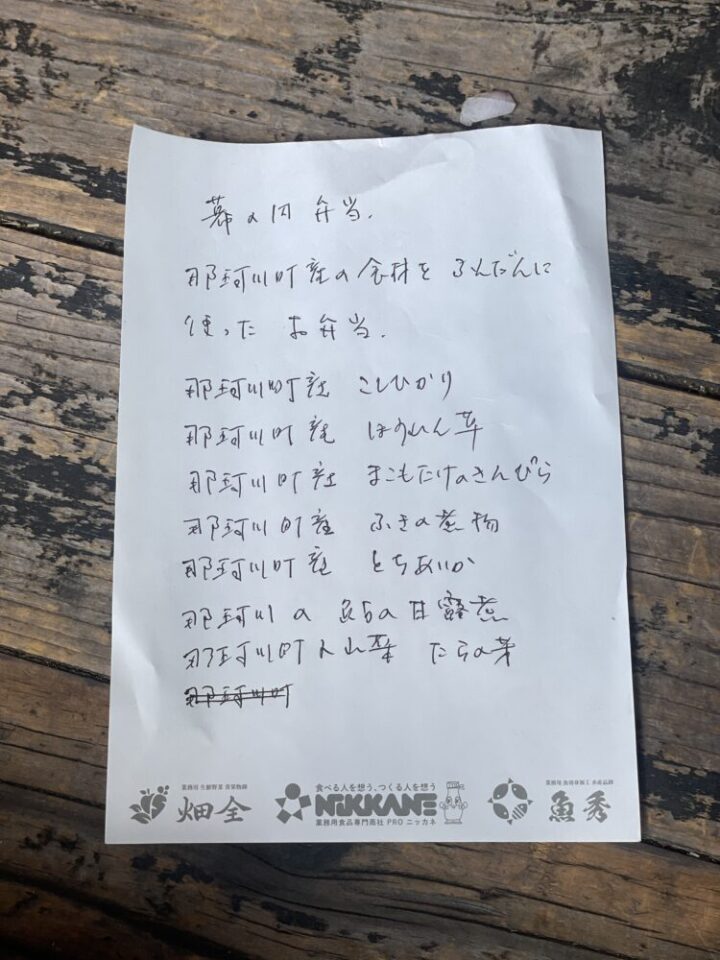 幕の内 弁当.
那珂川町産の食材を ふんだんに
使った お弁当.
那珂川町産 こしひかり
那珂川町産 ほうれん草
那珂川町産 まこもたけのきんぴら
那珂川町産 ふきの煮物
那珂川町産 とちあいか
那珂川の の甘露煮
那珂川町 たらの芽
那珂川町
業務用 生鮮野菜 青果物卸
畑全
食べる人を想う、つくる人を想う
NIKKANE
業務用食品専門商社 PRO ニッカネ
業務用 魚刺身加工 水産品卸
魚秀